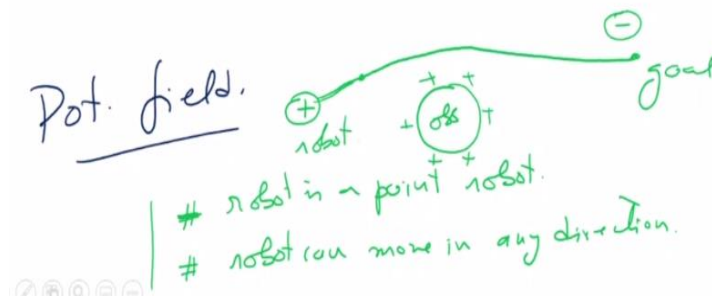 Pot. field.
+
robot
obs
+ + + + + +
−
goal
# robot is a point robot.
# robot can move in any direction.